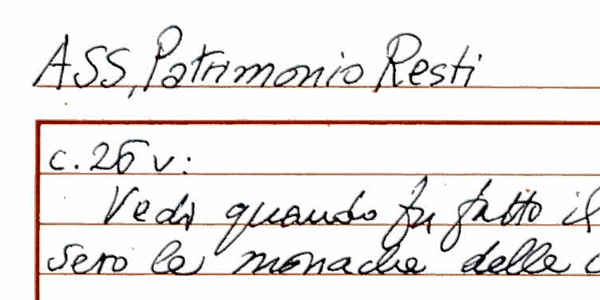 ASS, Patrimonio Resti
c. 26 v:
Vedi quando fu fatto il
sero le monache delle